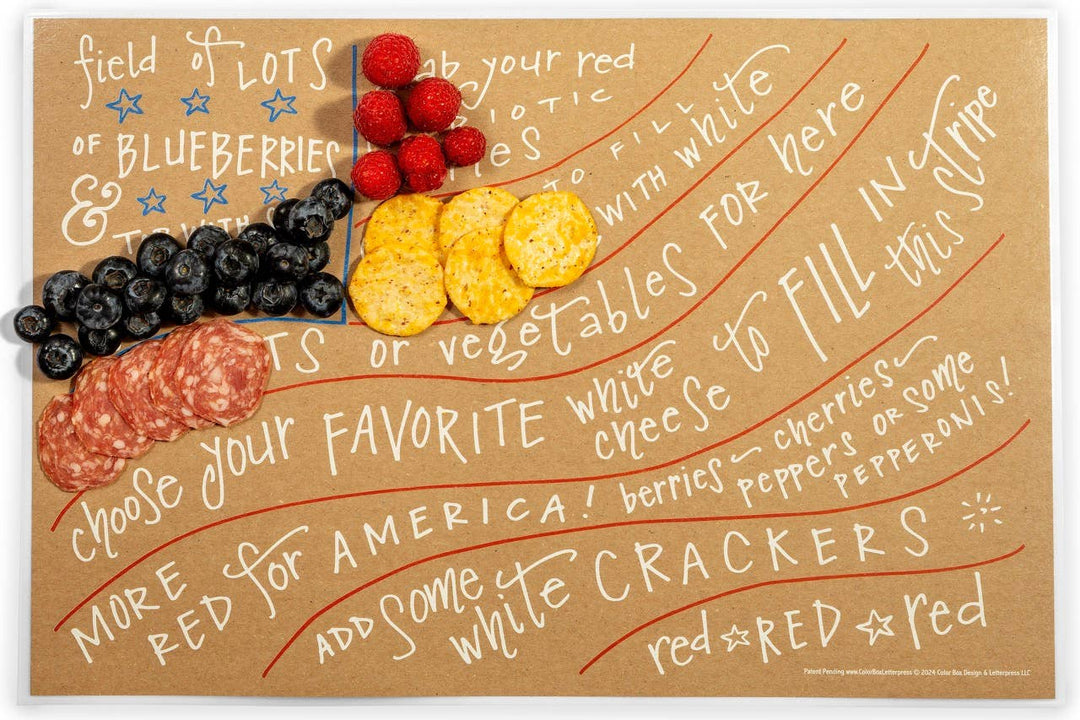 field of LOTS
OF BLUEBERRIES
&
your red
TO FILL
WITH white
or vegetables FOR here
choose your FAVORITE white cheese to FILL IN this stripe
MORE RED for AMERICA! berries ~ cherries ~ peppers OR SOME PEPPERONIS!
ADD SOME white CRACKERS
red ☆ RED ☆ red
Patent Pending www.ColorBoxLetterpress © 2024 Color Box Design & Letterpress LLC